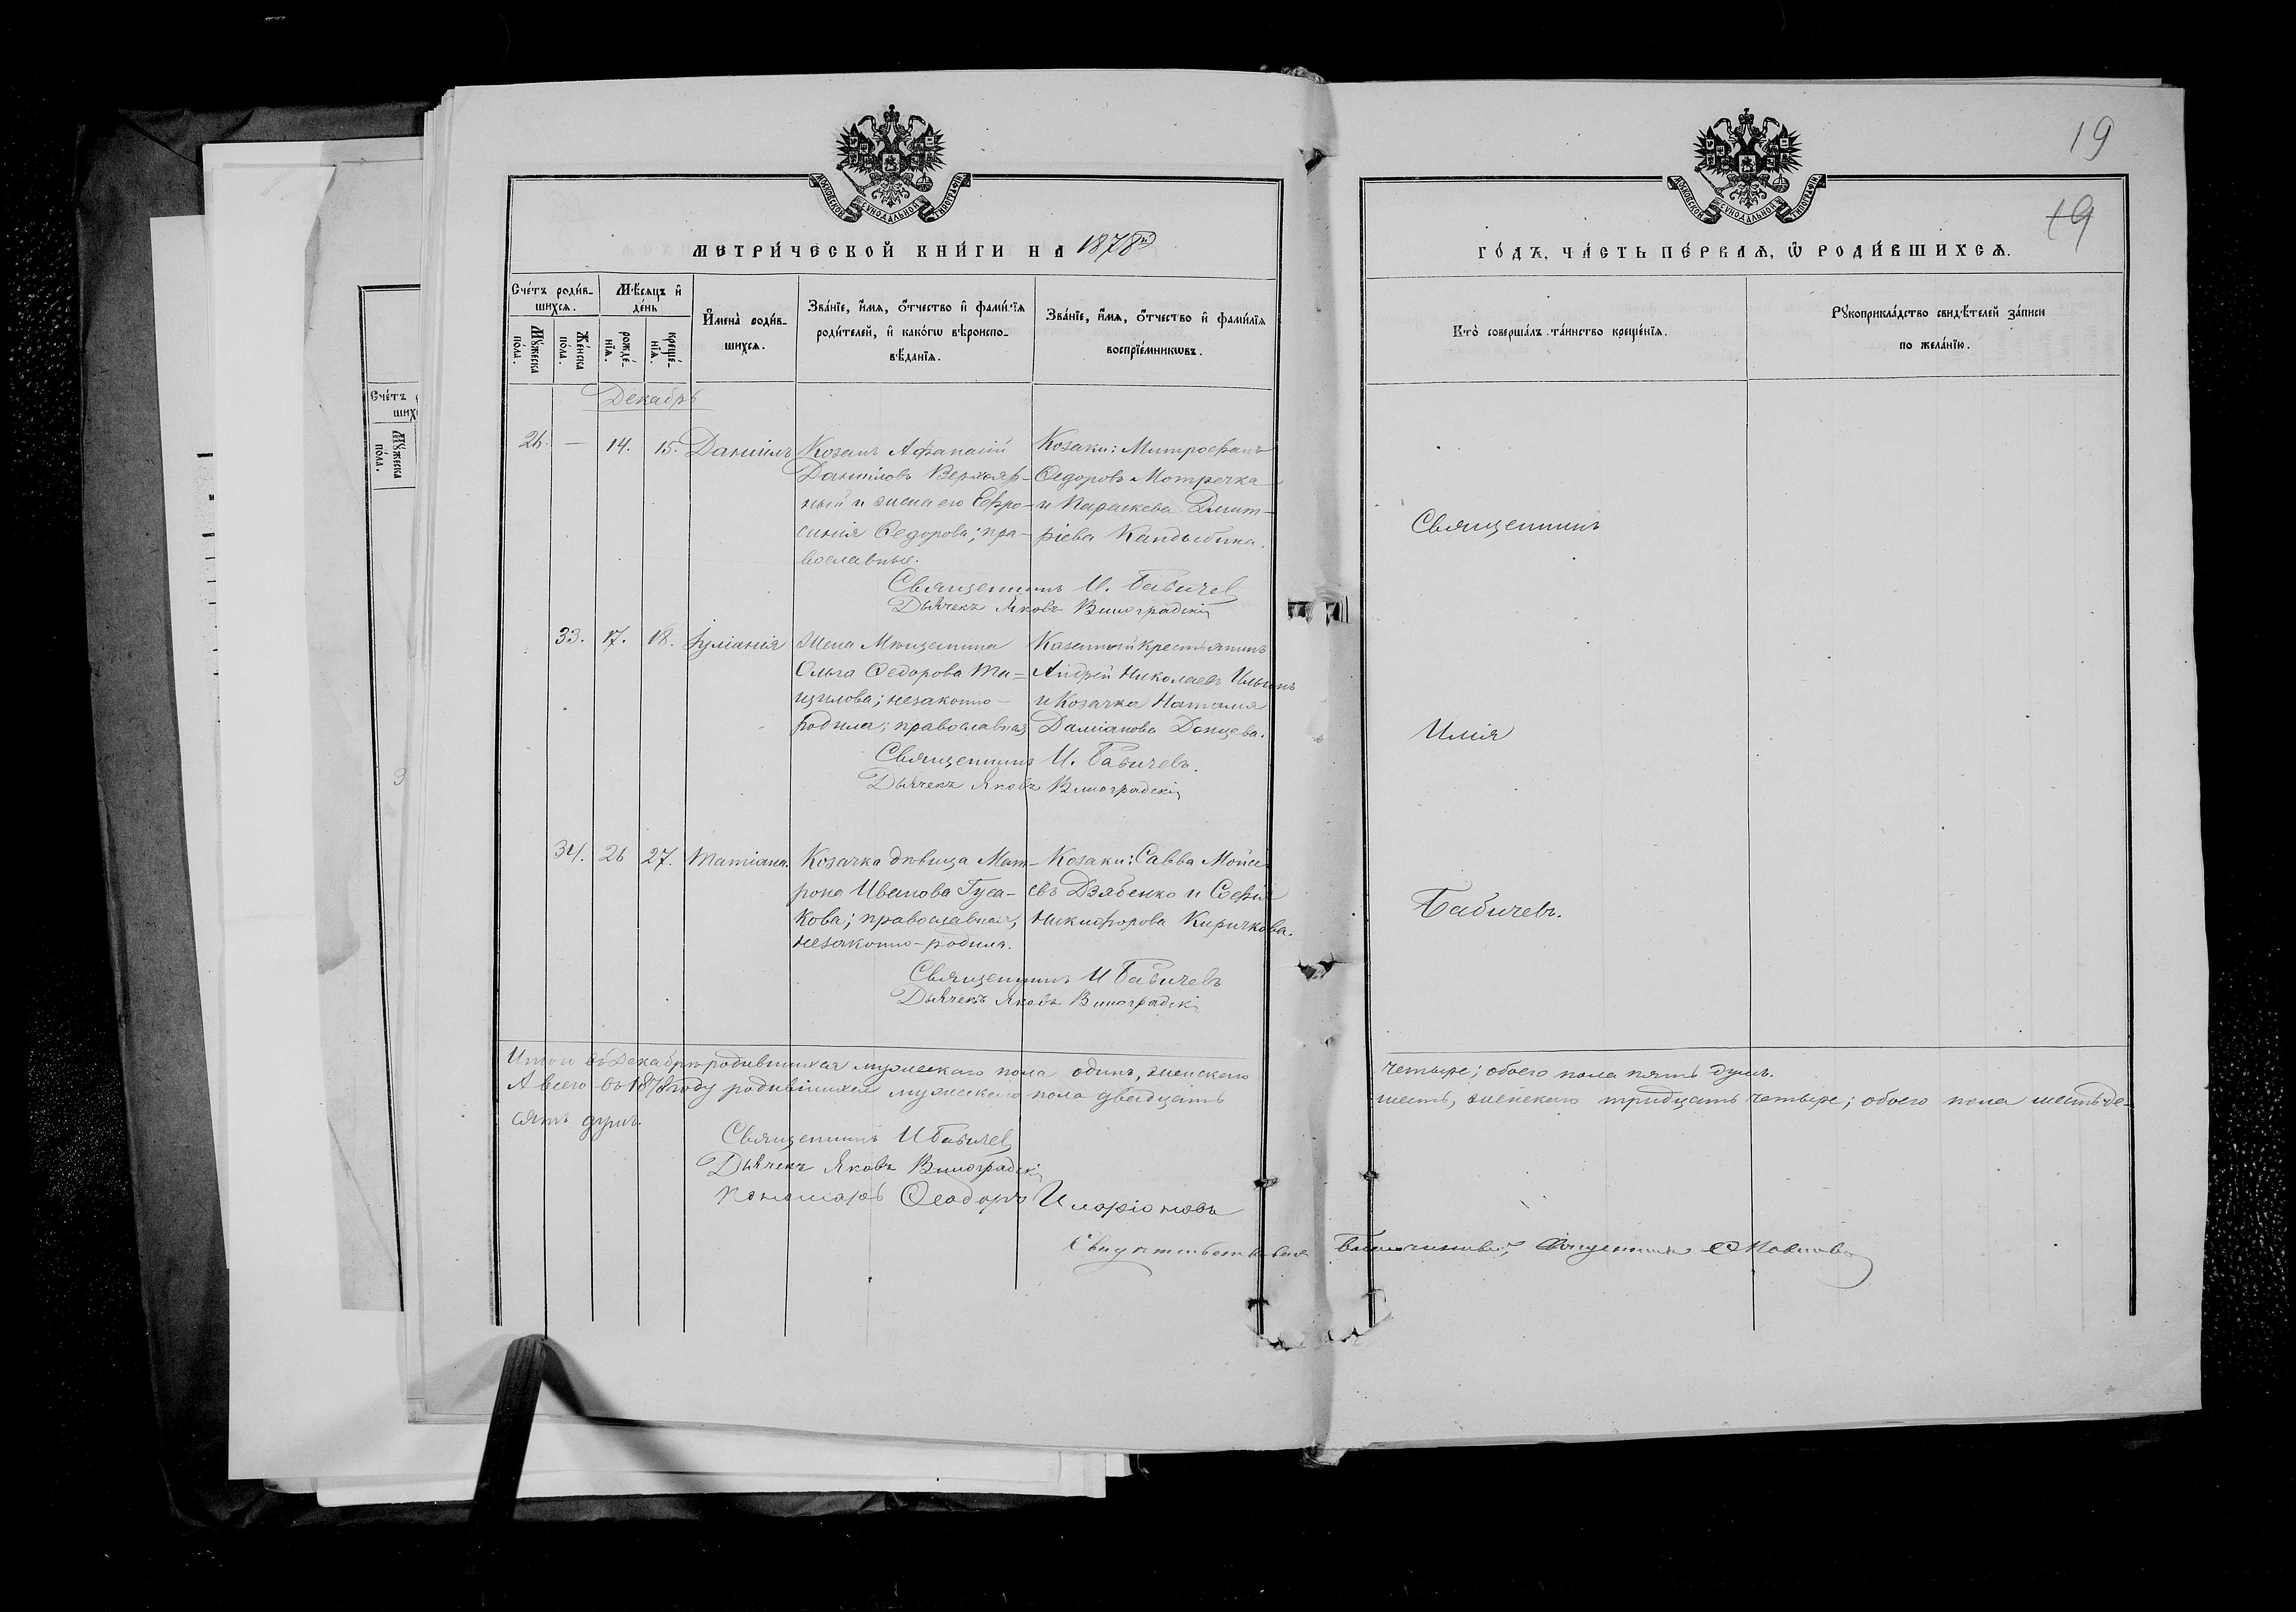 19
19
МОСКОВСКОЙ СѴНОДАЛЬНОЙ ТИПОГРАФІИ
МЕТРИ́ЧЕСКОЙ КНИ́ГИ НА 1878й
Сче́тъ роди́в-
шихся.
Мѣ́сяцъ и҆
де́нь
Му́жеска
по́ла.
Же́нска
по́ла.
рожде́-
нїя.
креще́-
нїя.
И҆мена̀ роди́в-
шихся.
Зва́нїе, и҆́мя, ѻ҆́тчество и҆ фами́лїя
роди́телей, и҆ како́гѡ вѣроиспо-
вѣ́данїя.
Зва́нїе, и҆́мя, ѻ҆́тчество и҆ фами́лїя
воспрїе́мникѡвъ.
Декабрь
26. — 14. 15. Даніилъ
Козакъ Афанасій
Даниловъ Верхояр-
ный и жена его Евфро-
синія Ѳедорова; пра-
вославные.
Козаки: Митрофанъ
Ѳедоровъ Мотречка
и Параскева Дмит-
ріева Кандыбина.
Священникъ И. Бабичев
Дьячекъ Яковъ Виноградскій
33. 17. 18. Іуліанія
Жена Мѣщанина
Ольга Ѳедорова
незаконно-
родила; православная
Казенный крестьянинъ
Андрей Николаевъ Ильинъ
и Козачка Наталия
Даміанова Донцева.
Священникъ И. Бабичевъ.
Дьячекъ Яковъ Виноградскій
34. 26 27. Татіана.
Козачка дѣвица Мат-
рона Иванова Гуса-
кова; православная;
незаконно-родила.
Козаки: Савва Мойсе-
евъ Дзябенко и Софія
Никифорова Киричкова.
Священникъ И Бабичевъ
Дьячекъ Яковъ Виноградскій
Итого въ Декабрѣ родившихся мужескаго пола одинъ, женскаго
А всего въ 1878 году родившихся мужескаго пола двадцать
сятъ душъ.
Священникъ И Бабичев
Дьячекъ Яковъ Виноградскій
Пономарь Ѳеодоръ Иларіоновъ
Свидѣтельствовалъ Благочинный, Священникъ
МОСКОВСКОЙ СѴНОДАЛЬНОЙ ТИПОГРАФІИ
ГО́ДЪ, ЧА́СТЬ ПЕ́РВАЯ, Ѽ РОДИ́ВШИХСЯ.
Кто̀ соверша́лъ та́инство креще́нїя.
Рꙋкоприкла́дство свидѣ́телей за́писи
по жела́нїю.
Священникъ
Илія
Бабичевъ.
четыре; обоего пола пять душъ.
шесть, женскаго тридцать четыре; обоего пола шестьде-
Сче́тъ
ших
Му́жеска
по́ла.
3